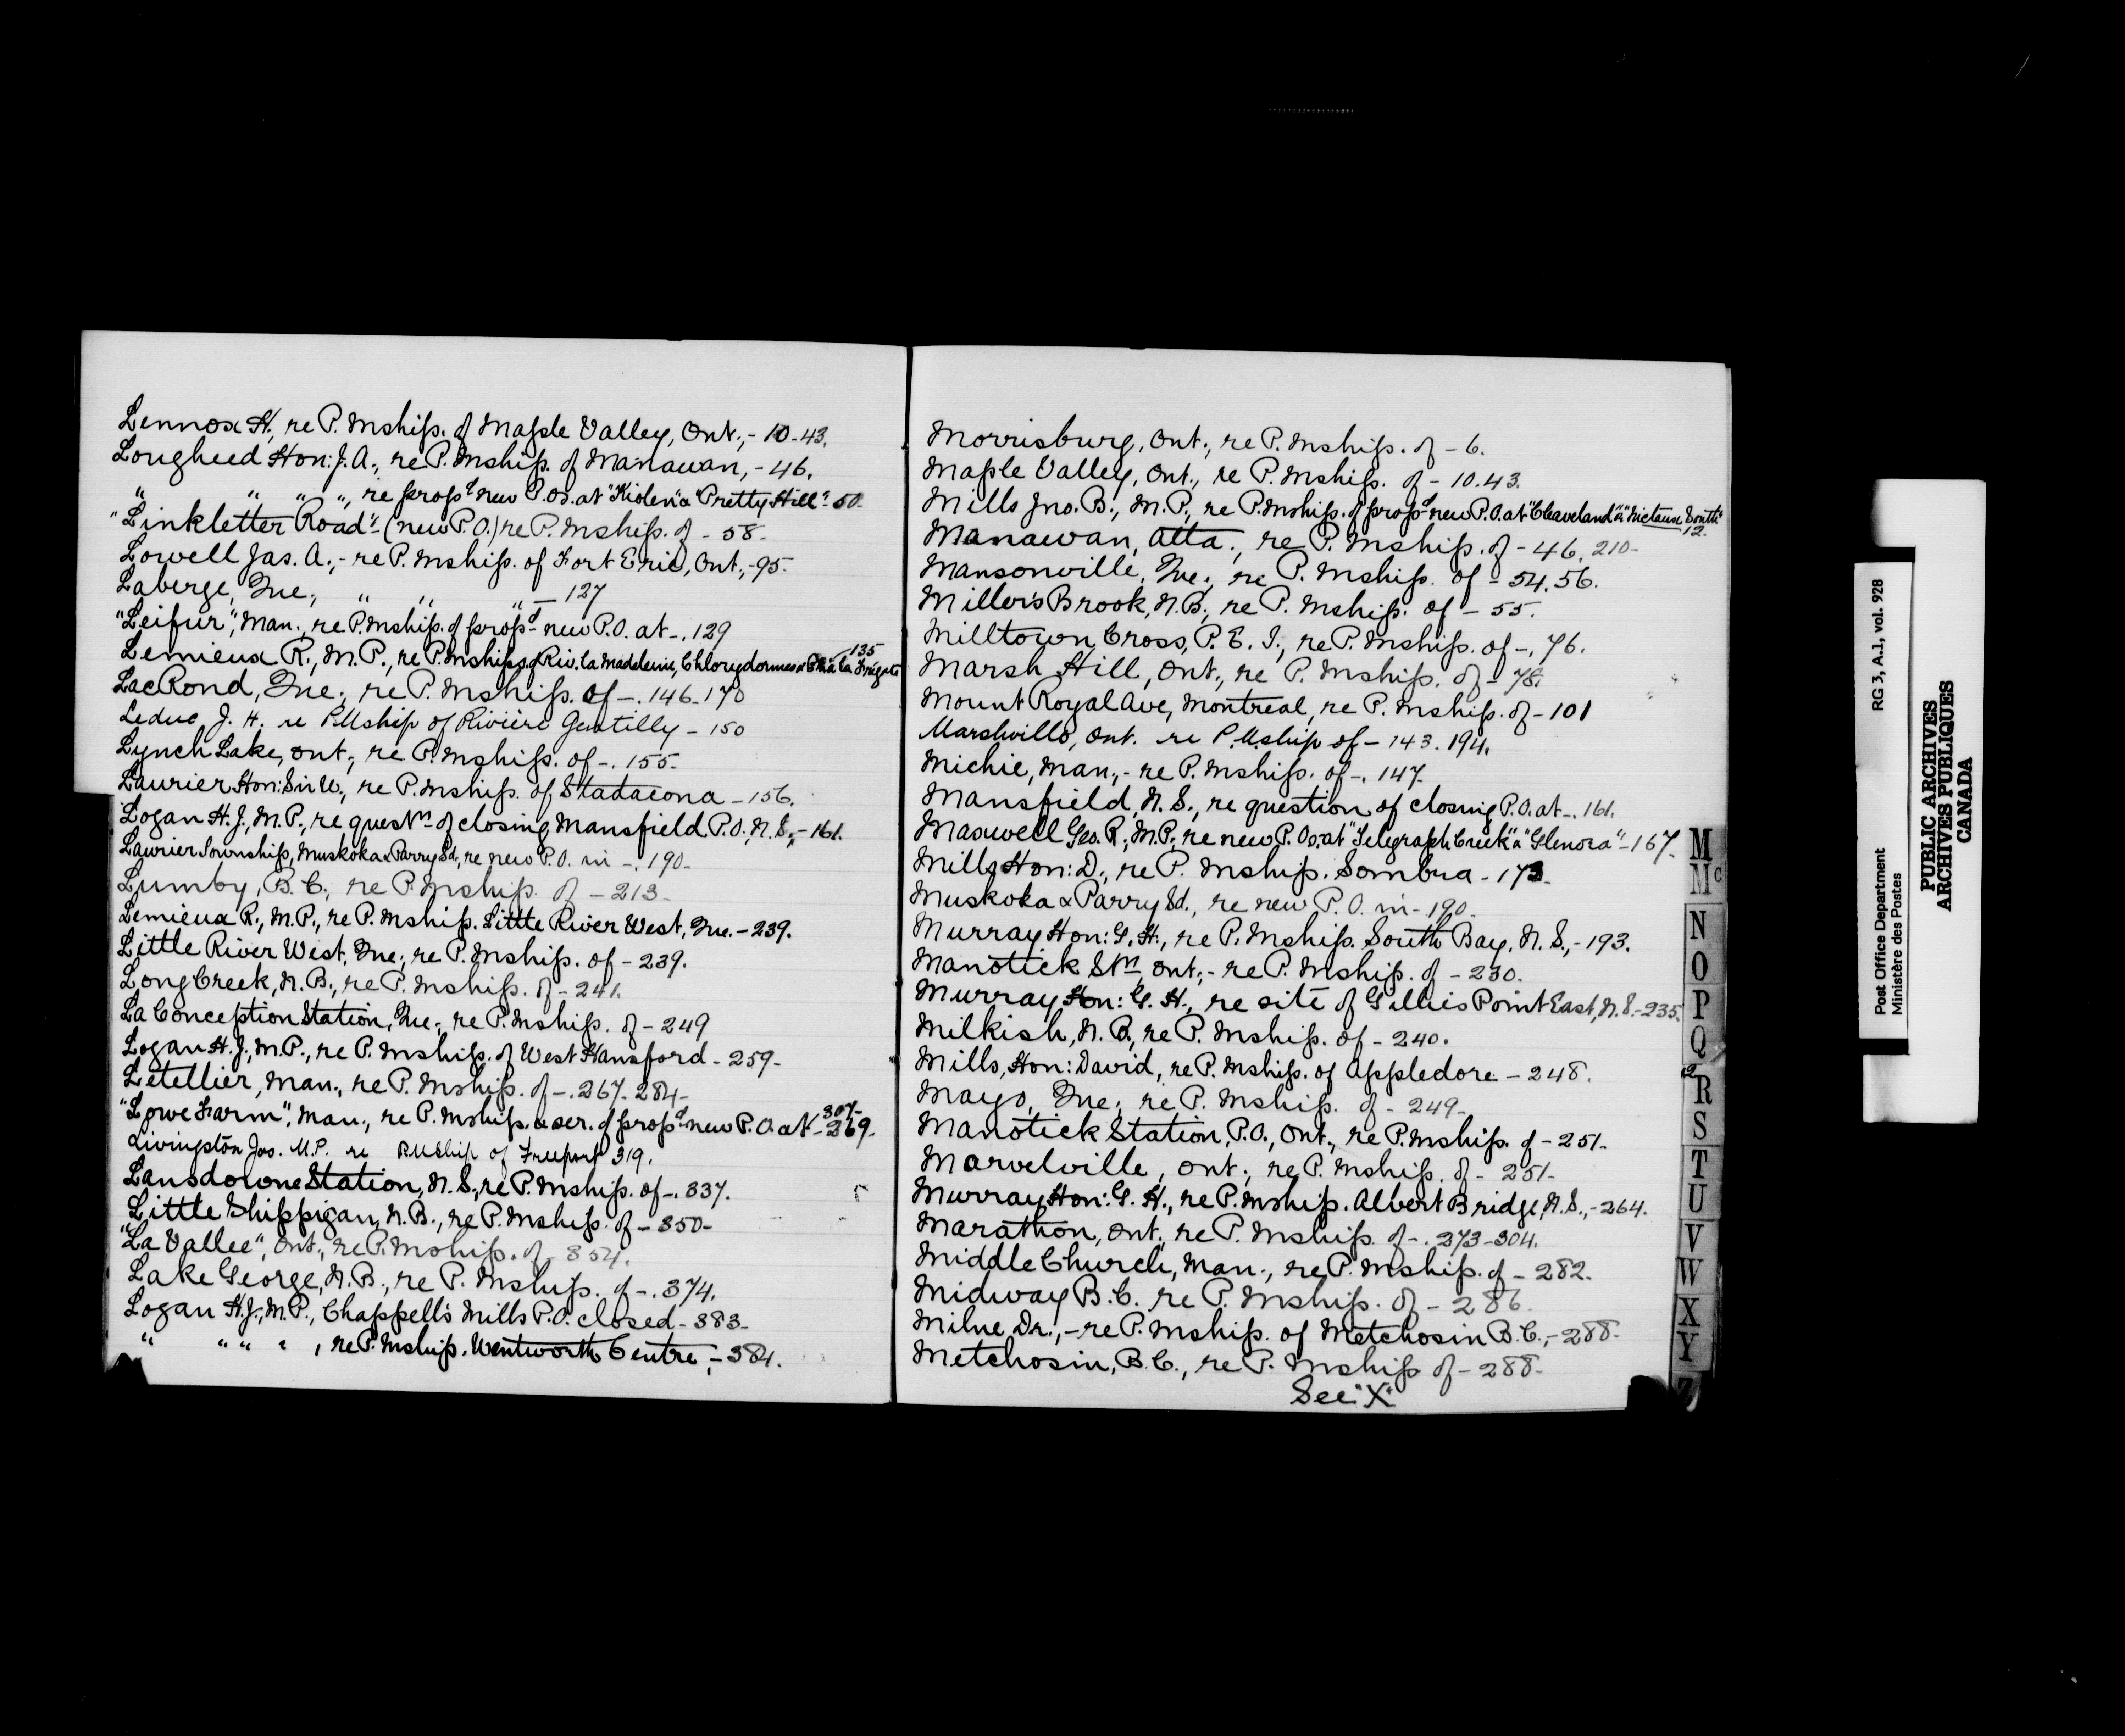 Lennox H., re P. Mship. of Maple Valley, Ont., - 10-43.
Lougheed Hon: J. A., re P. Mship. of Manawan, - 46.
" " " ", re prop'd new P.Os. at "Kiolen" & "Pretty Hill" - 50-
"Linkletter Road" - (new P.O.) re P. Mship. of - 58-
Lowell Jas. A., - re P. Mship. of Fort Erie, Ont., - 95-
Laberge, Que., " " " - 127
"Leifur", Man., re P. Mship. of prop'd new P.O. at -. 129
Lemieux R., M.P., re P. Mships. of Riv. la Madeleine, Chlorydormes & à la Frégate 135
Lac Rond, Que., re P. Mship. of -. 146-170
Leduc J. H. re P.Mship of Rivière Gentilly - 150
Lynch Lake, Ont., re P. Mship. of -. 155-
Laurier Hon: Sir W., re P. Mship. of Stadacona - 156.
Logan H. J., M.P., re quest'n of closing Mansfield P.O., N.S., - 161.
Laurier Township, Muskoka & Parry Sd., re new P.O. in -. 190-
Lumby, B.C., re P. Mship. of - 213-
Lemieux R., M.P., re P. Mship. Little River West, Que. - 239.
Little River West, Que., re P. Mship. of - 239.
Long Creek, N.B., re P. Mship. of - 241.
La Conception Station, Que., re P. Mship. of - 249
Logan H. J., M.P., re P. Mship. of West Hansford - 259-
Letellier, Man., re P. Mship. of -. 267-284-
"Lowe Farm", Man., re P. Mship. & ser. of prop'd new P.O. at - 269- 307-
Livingston Jas. M.P. re P.MShip of Freeport 319.
Lansdowne Station, N.S., re P. Mship. of -. 337.
Little Shippigan, N.B., re P. Mship. of - 350-
"La Vallee", Ont., re P. Mship. of 354.
Lake George, N.B., re P. Mship. of -. 374.
Logan H. J., M.P., Chappell's Mills P.O. closed - 383-
" " " " , re P. Mship. Wentworth Centre, - 384.
Morrisburg, Ont., re P. Mship. of - 6.
Maple Valley, Ont., re P. Mship. of - 10.43.
Mills Jno. B., M.P., re P. Mship. of prop'd new P.O. at "Cleaveland" & "Nictaux South" 12.
Manawan, Alta., re P. Mship. of - 46. 210-
Mansonville, Que., re P. Mship. of - 54.56.
Miller's Brook, N.B., re P. Mship. of - 55.
Milltown Cross, P.E.I., re P. Mship. of -. 76.
Marsh Hill, Ont., re P. Mship. of - 78.
Mount Royal Ave, Montreal, re P. Mship. of - 101
Marshville, Ont. re P.Mship of - 143. 194.
Michie, Man., - re P. Mship. of -. 147-
Mansfield, N.S., re question of closing P.O. at -. 161.
Maxwell Geo. R., M.P., re new P.Os. at "Telegraph Creek" & "Glenora" - 167-
Mills Hon: D., re P. Mship. Sombra - 173-
Muskoka & Parry Sd., re new P.O. in - 190-
Murray Hon: G. H., re P. Mship. South Bay, N.S., - 193.
Manotick St'n, Ont., - re P. Mship. of - 230.
Murray Hon: G. H., re site of Gillies Point East, N.S. - 235.
Milkish, N.B., re P. Mship. of - 240.
Mills, Hon: David, re P. Mship. of Appledore - 248.
Mayo, Que., re P. Mship. of - 249-
Manotick Station, P.O., Ont., re P. Mship. of - 251-
Marvelville, Ont., re P. Mship. of - 251-
Murray Hon: G. H., re P. Mship. Albert Bridge, N.S., - 264.
Marathon, Ont., re P. Mship. of -. 273-304.
Middle Church, Man., re P. Mship. of - 282.
Midway B.C. re P. Mship. of - 286.
Milne, Dr., - re P. Mship. of Metchosin B.C., - 288-
Metchosin, B.C., re P. Mship of - 288-
See "X"
M
Mc
N
O
P
Q
R
S
T
U
V
W
X
Y
Z
Post Office Department RG 3, A.1, vol. 928
Ministère des Postes
PUBLIC ARCHIVES
ARCHIVES PUBLIQUES
CANADA